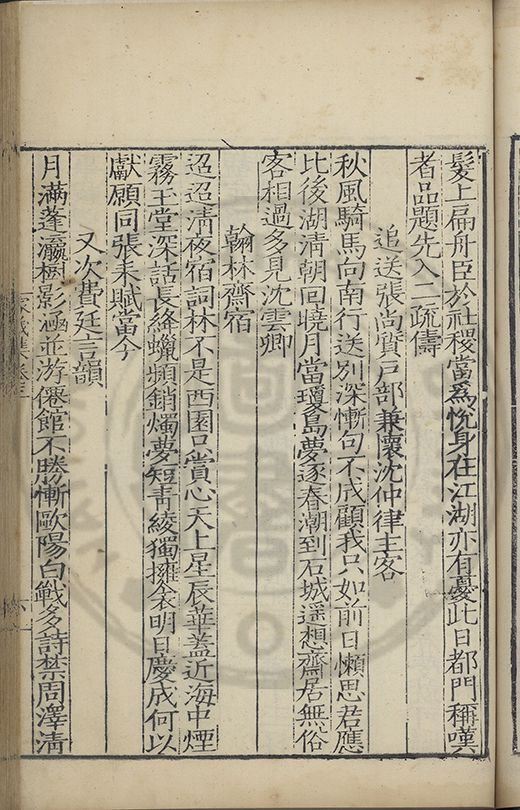 髮上扁舟臣於社稷當爲悅身在江湖亦有憂此日都門稱嘆
者品題先入二疏儔
追送張尚質戸部兼懷沈仲律主客
秋風騎馬向南行送別深慚句不成顧我只如前日懶思君應
比後湖淸朝回曉月當瓊島夢逐春潮到石城遥想齋居無俗
客相過多見沈雲卿
翰林齋宿
迢迢淸夜宿詞林不是西園只賞心天上星辰華蓋近海中煙
霧玉堂深話長絳蠟頻銷燭夢短靑綾獨擁衾明日慶成何以
獻願同張耒賦當今
又次費廷言韻
月滿蓬瀛樹影涵並游僊館不勝慚歐陽白戰多詩禁周澤淸
家藏集卷